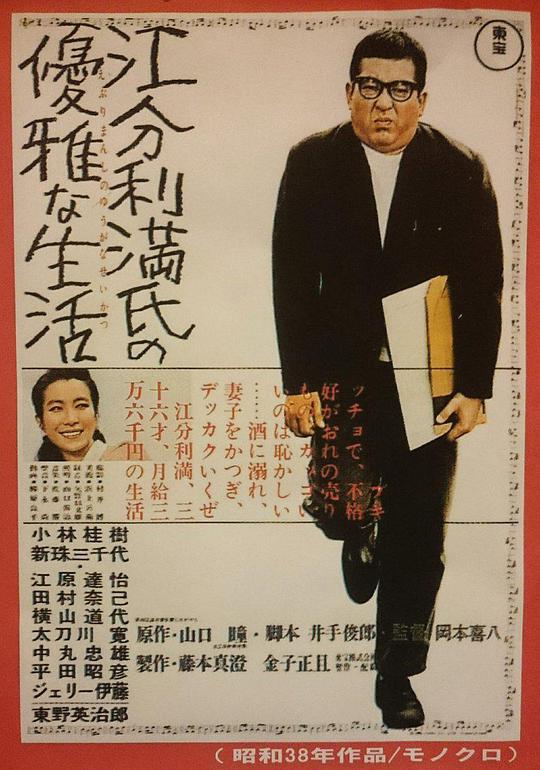 東宝
江分利満氏の
えぶりまんしのゆうがなせいかつ
優雅な生活
ブキ
ッチョで、不格
好がおれの売り
いのは恥かしい
……酒に溺れ、
妻子をかつぎ、
デッカクいくぜ
江分利満、三
十六才、月給三
万六千円の生活
小林桂樹
新珠三千代
江原達怡
田村奈己
横山道代
太刀川寛
中丸忠雄
平田昭彦
ジェリー伊藤
東野英治郎
原作・山口瞳・脚本 井手俊郎・監督 岡本喜八
製作・藤本真澄 金子正且
(昭和38年作品/モノクロ)